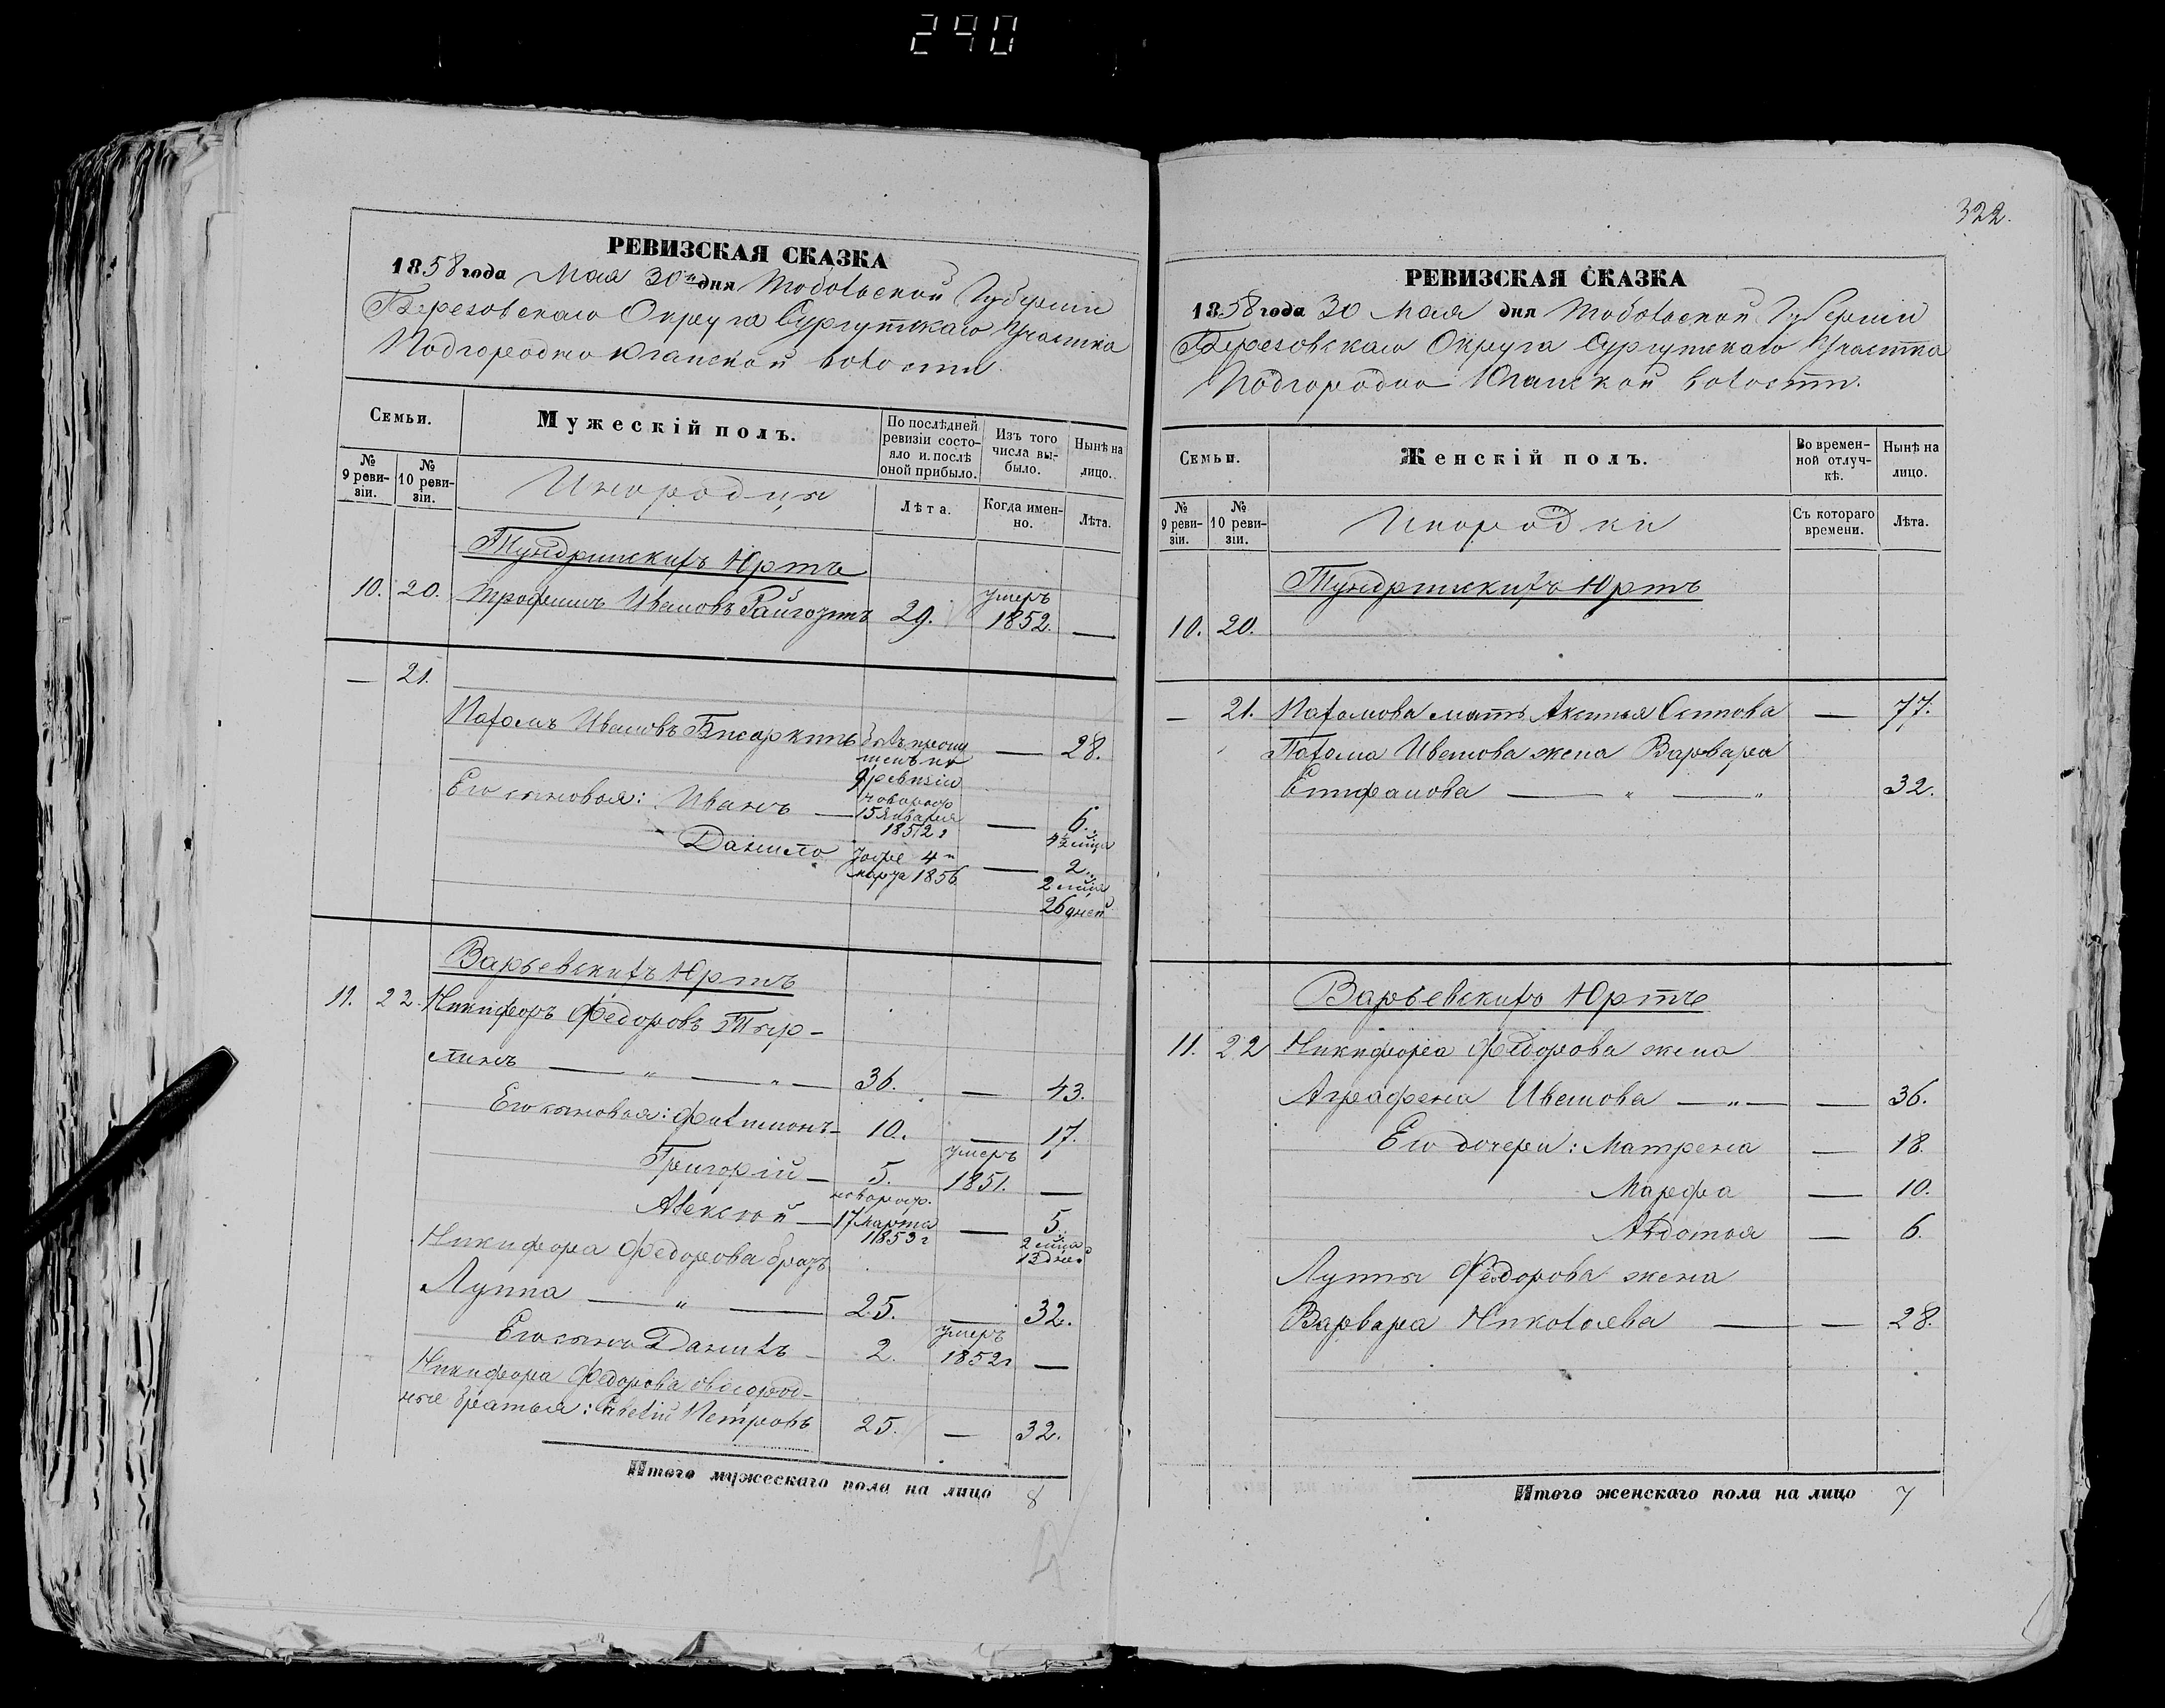 240
РЕВИЗСКАЯ СКАЗКА
1858 года Мая 30го дня Тобольской Губерніи
Березовскаго Округа Сургутскаго Участка
Подгородно Юганской волости.
Семьи.
Мужескій полъ.
По послѣдней ревизіи состояло и послѣ оной прибыло.
Изъ того числа выбыло.
Нынѣ на лицо.
№ 9 ревизіи.
№ 10 ревизіи.
Инородцы
Лѣта.
Когда именно.
Лѣта.
Тундринскихъ Юртъ
10. 20. Трофимъ Ивановъ 29. умеръ 1852. —
— 21.
Ивановъ 28.
9 ревизіи
Его сыновья: Иванъ — новорож 15 Января 1852 г — 6. 4½ мѣца
Данило тоже 4го марта 1856 — 2. 2 мѣца 26 дней
Варьевскихъ Юртъ
11. 22. Никифоръ Федоровъ Тыр-
линъ — " — " — 36. — 43.
Его сыновья: Филимонъ — 10. — 17.
Григорій — 5. умеръ 1851. —
Алексѣй — новорож. 17 марта 1853 г — 5. 2 мѣца 13 дней
Никифора Федорова братъ
Луппа — " — 25. — 32.
Его сынъ Данилъ — 2. умеръ 1852 г —
Никифора Федорова двоюрод-
ные братья: Петровъ 25. — 32.
Итого мужескаго пола на лицо 8
322.
РЕВИЗСКАЯ СКАЗКА
1858 года 30 Мая дня Тобольской Губерніи
Березовскаго Округа Сургутскаго Участка
Подгородно Юганской волости.
Семьи.
Женскій полъ.
Во временной отлучкѣ.
Нынѣ на лицо.
№ 9 ревизіи.
№ 10 ревизіи.
Инородки
Съ котораго времени.
Лѣта.
Тундринскихъ Юртъ
10. 20.
— 21. мать Аксинья — 77.
Иванова жена Варвара
Епифанова — " — " 32.
Варьевскихъ Юртъ
11. 22 Никифора Федорова жена
Аграфена Иванова — " — — 36.
Его дочери: Матрена — 18.
Марфа — 10.
Авдотья — 6.
Луппы Федорова жена
Варвара Николаева — — 28.
Итого женскаго пола на лицо 7